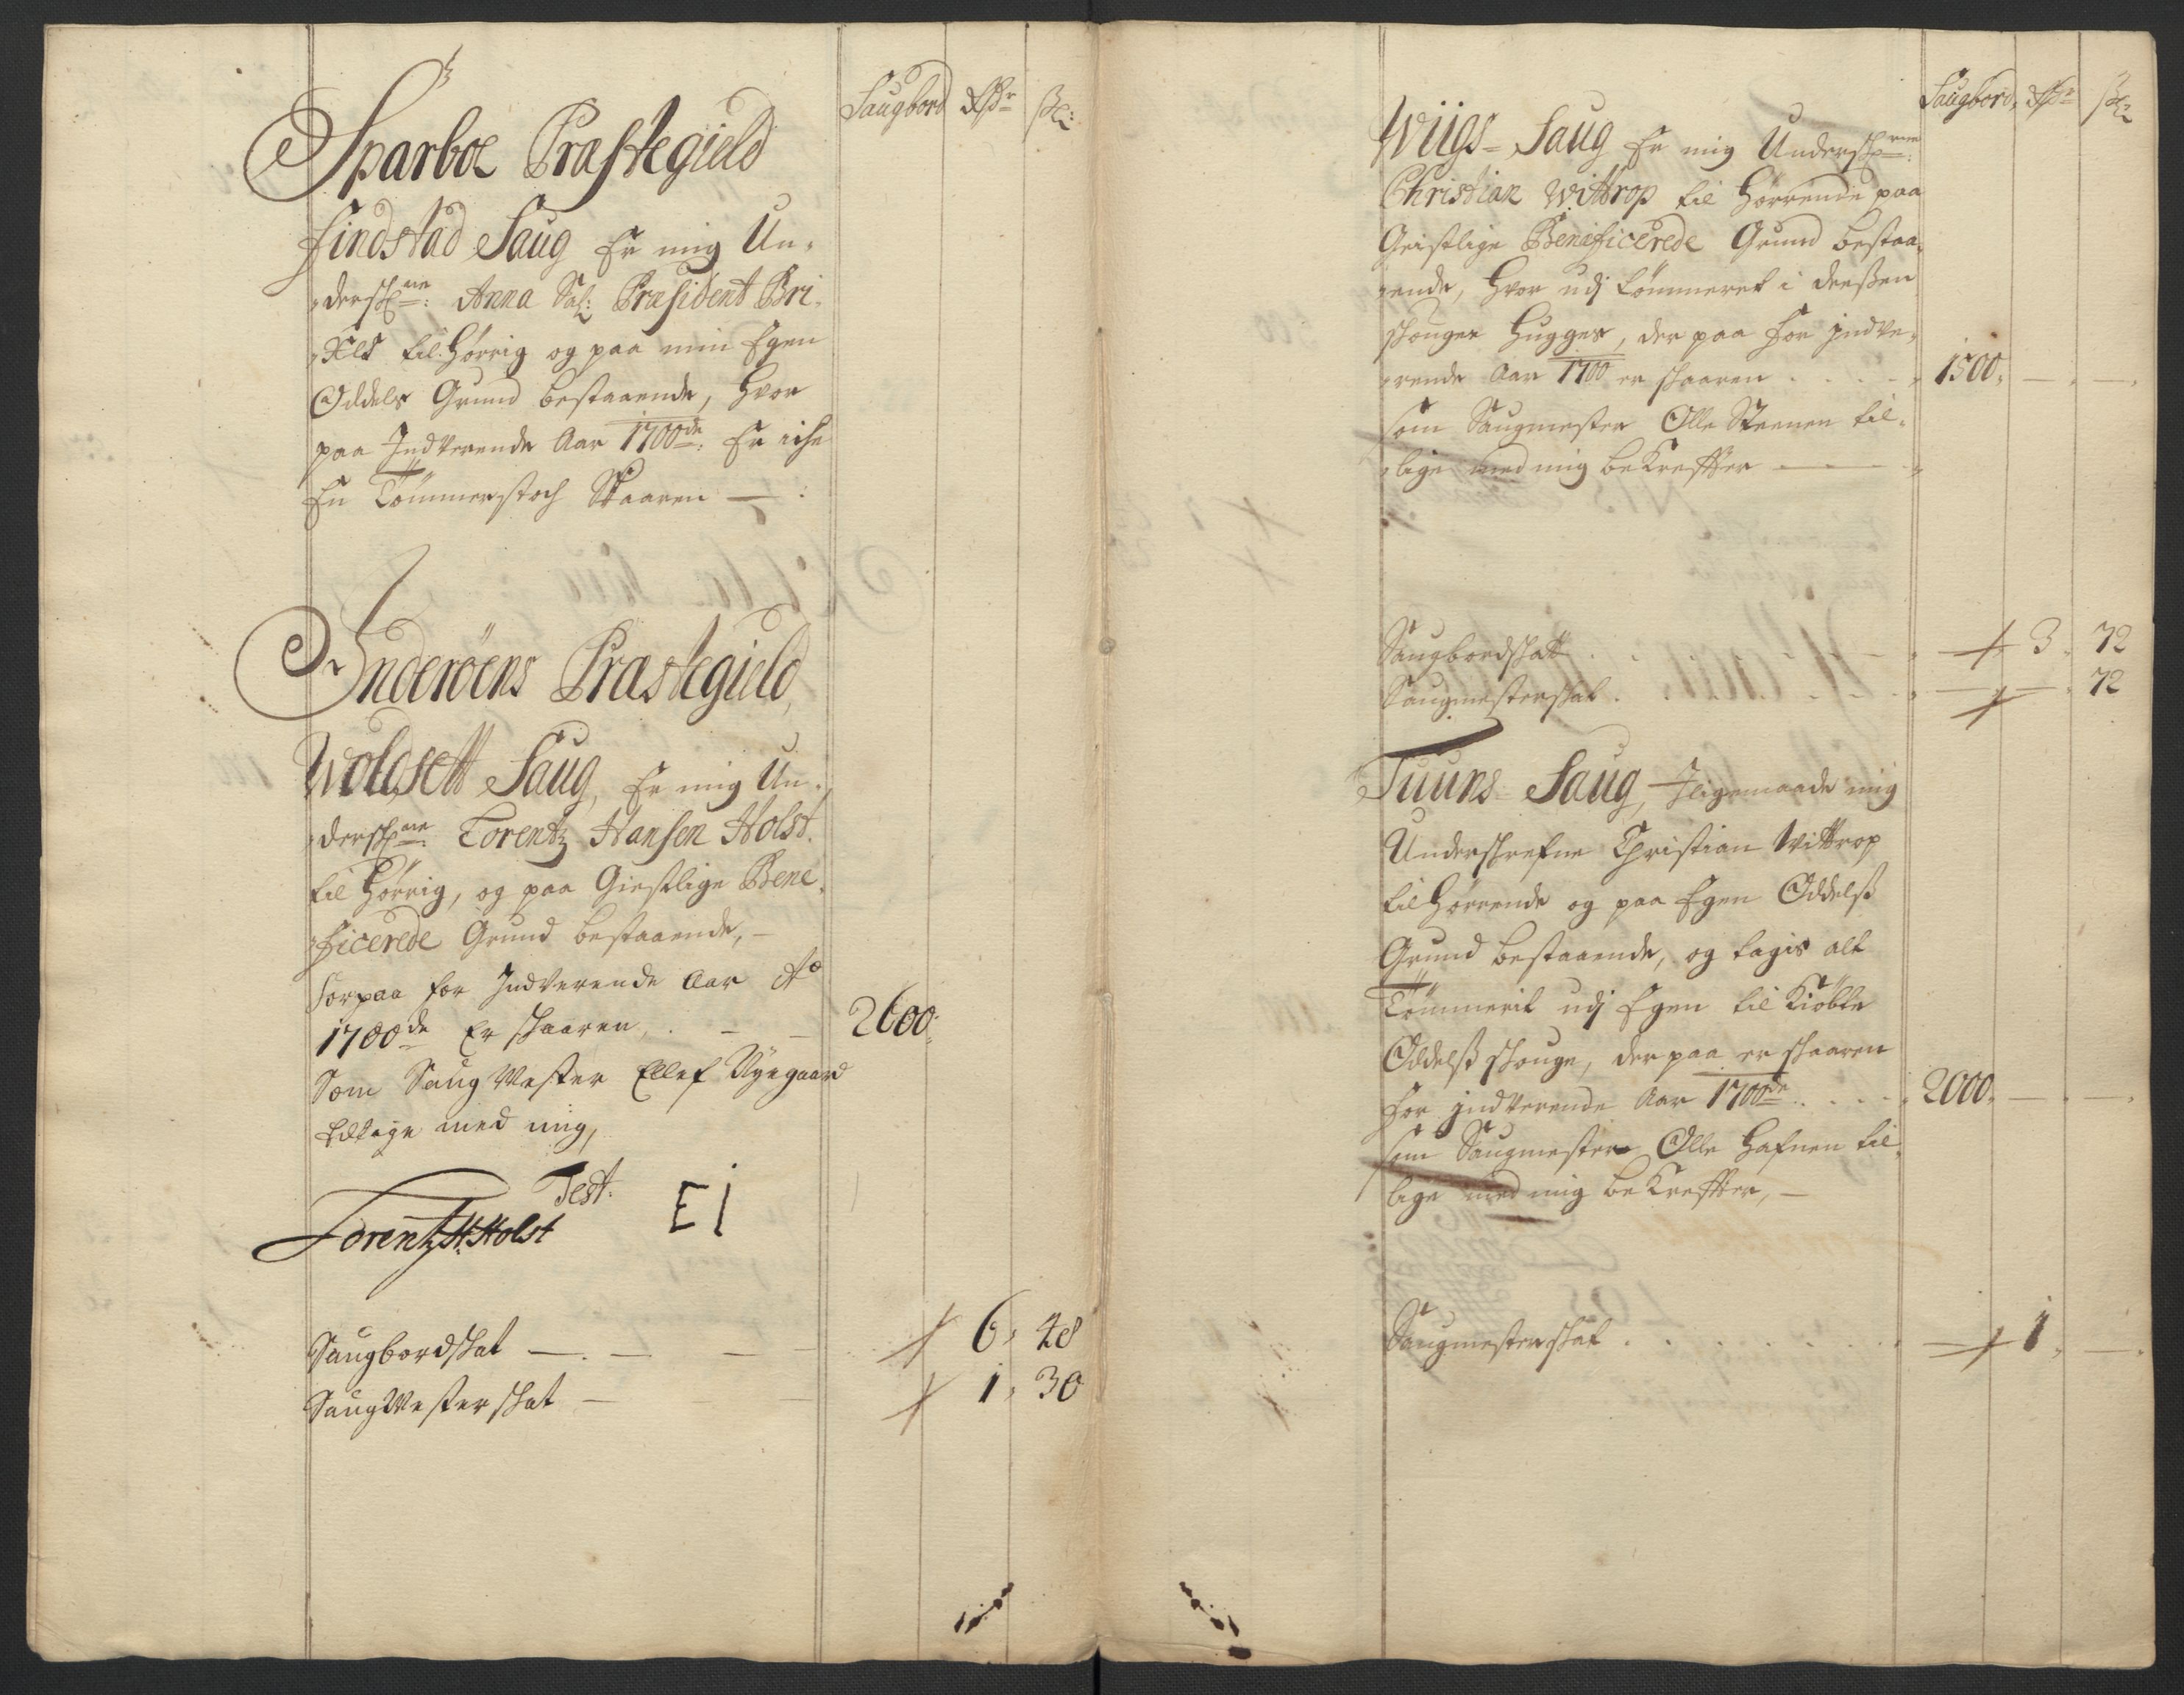 Saugbord Rdr ẞl:
Sparboe Præstegield
Findstad Saug Er mig Un,
,dersch:ne: Anna Sal: Præsident Bri,
,xes til Hørrig og paa min Egen
Oddels Grund bestaaende, hvor
paa Indverende Aar 1700de: Er iche
En Tømmerstoch Skaaren — :
Inderöens Præstegield,
Woldsett Saug, Er mig Un,
,dersch:ne Lorentz Hansen Holst.
til Hørrig, og paa Giestlige Bene,
,ficerede Grund bestaaende, —
Sorpaa for Indverende Aar Ao
1700de Er skaaren, . — — 2600.
Som Saug Mester Ellef Nygaard
med mig,
Test.
Lorentz H: Holst E I
Saugbordskat — . — — — 6, 48
SaugMesterskat — — — 1, 30
Saugbord, Rdr ẞl:
Wiigs- Saug Er mig Undersch:rne:
Christian Wittrop til Hørrende paa
Geistlige Beneficerede Grund bestaa,
,ende, hvor udj tömmeret i deeßen
skouger Hugges, der paa for indve,
,rende Aar 1700 er skaaren . . . - , 1500, — . — .
som Saugmester Olle Steenen til,
,lige med mig bekreffter — — — ,
Saugbordskatt . . . — 3, 72
Saugmesterskat . . . — — 72
Tuuns- Saug, Iligemaade mig
Underskrefne Christian Wittrop
til Hørrende og paa Egen Oddelß
Grund bestaaende, og tagis alt
Tömmerit udj Egen til Kiöbte
Oddelß skouge, der paa er skaaren
for indverende Aar 1700de . . . - , 2000, — . — .
som Saugmester Olle Hafnen til,
lige med mig bekreffter, —
Saugmesterskat . . . . . . — 1, — .